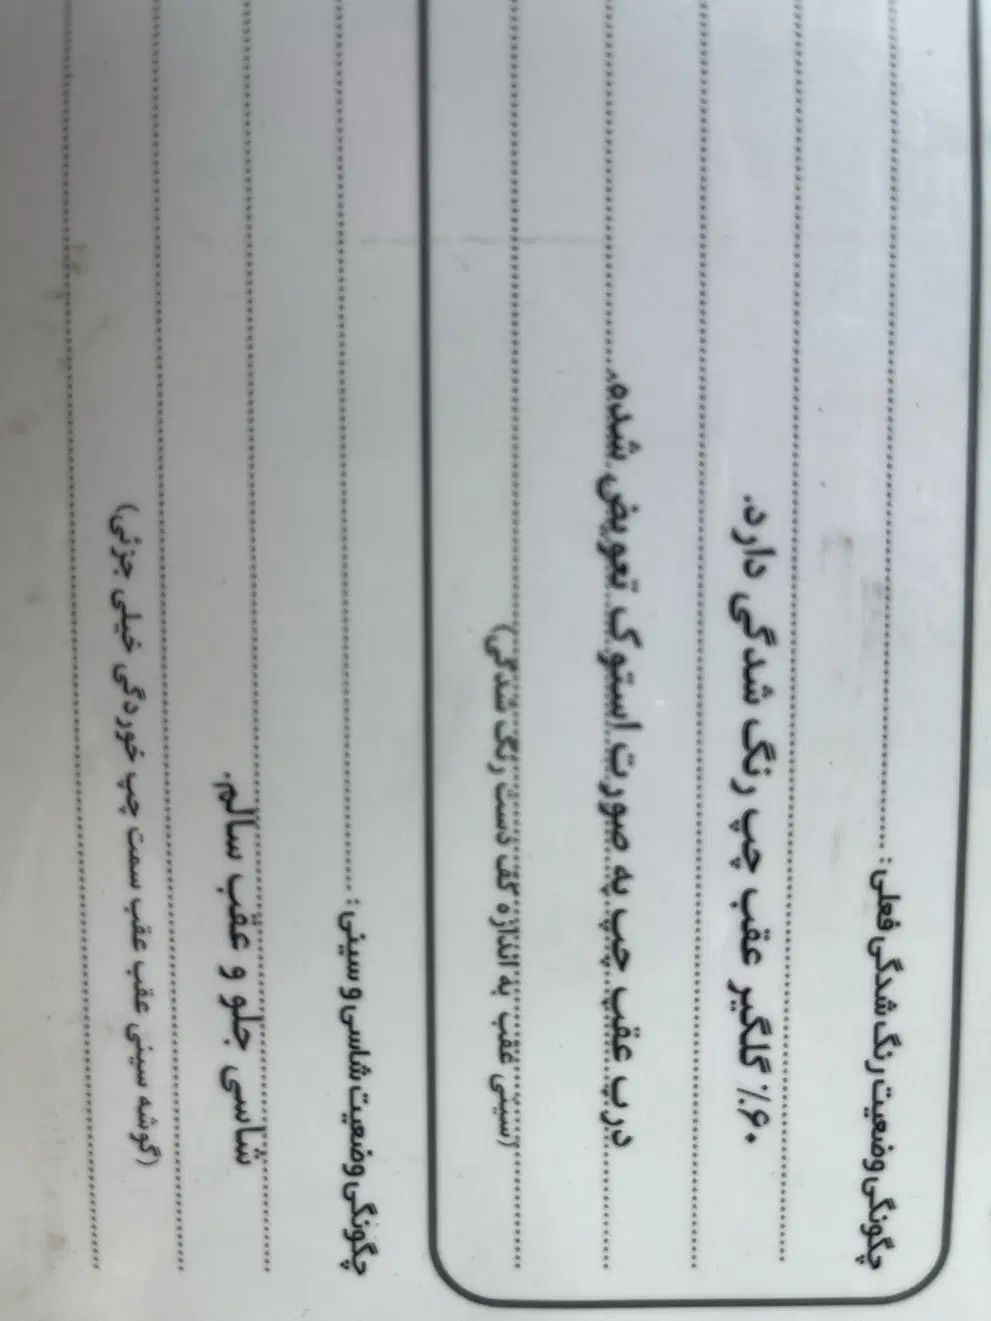 چگونگی وضعیت رنگ شدگی فعلی :
۶۰٪ گلگیر عقب چپ رنگ شدگی دارد.
درب عقب چپ به صورت استوک تعویض شده.
(سینی عقب به اندازه کف دست رنگ شدگی)
چگونگی وضعیت شاسی و سینی :
شاسی جلو و عقب سالم.
(گوشه سینی عقب سمت چپ خوردگی خیلی جزئی)